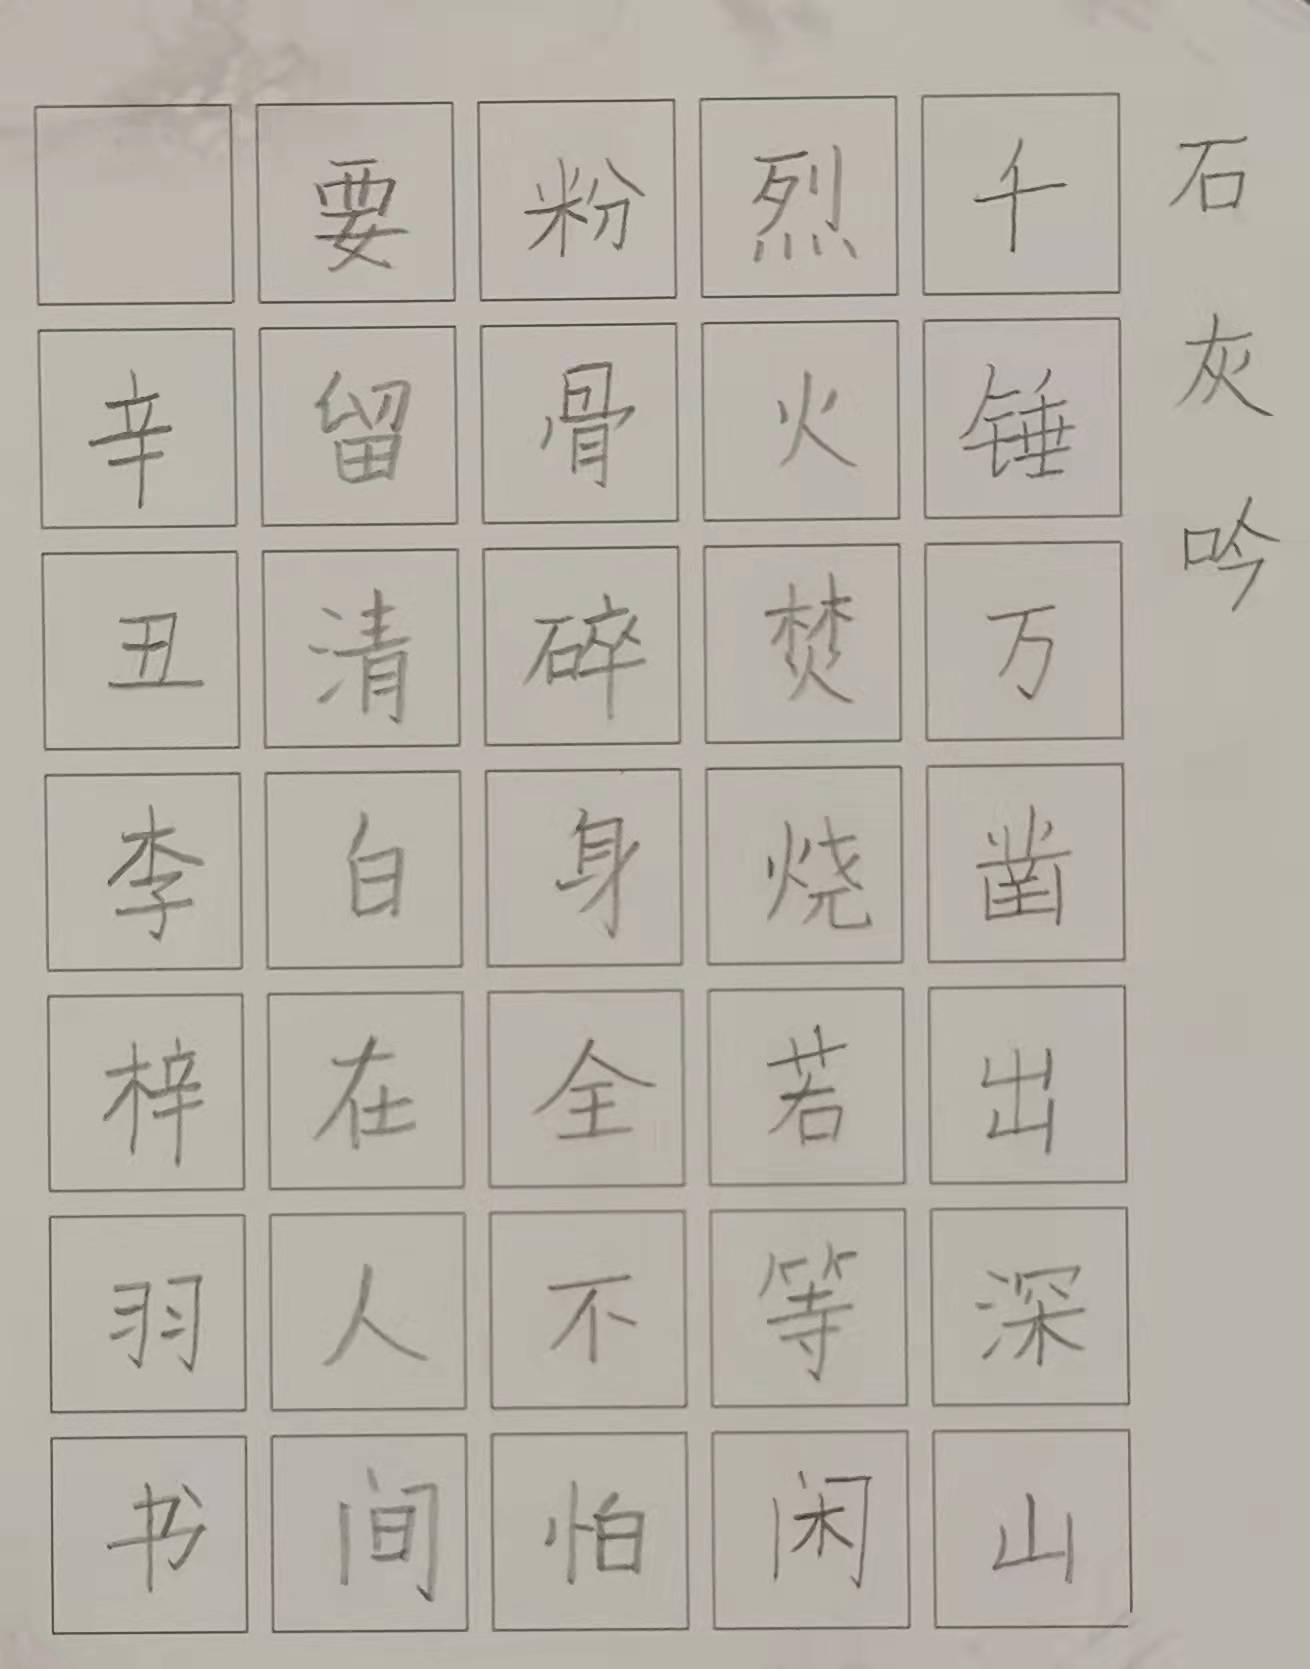 石灰吟
千锤万凿出深山
烈火焚烧若等闲
粉骨碎身全不怕
要留清白在人间
辛丑李梓羽书